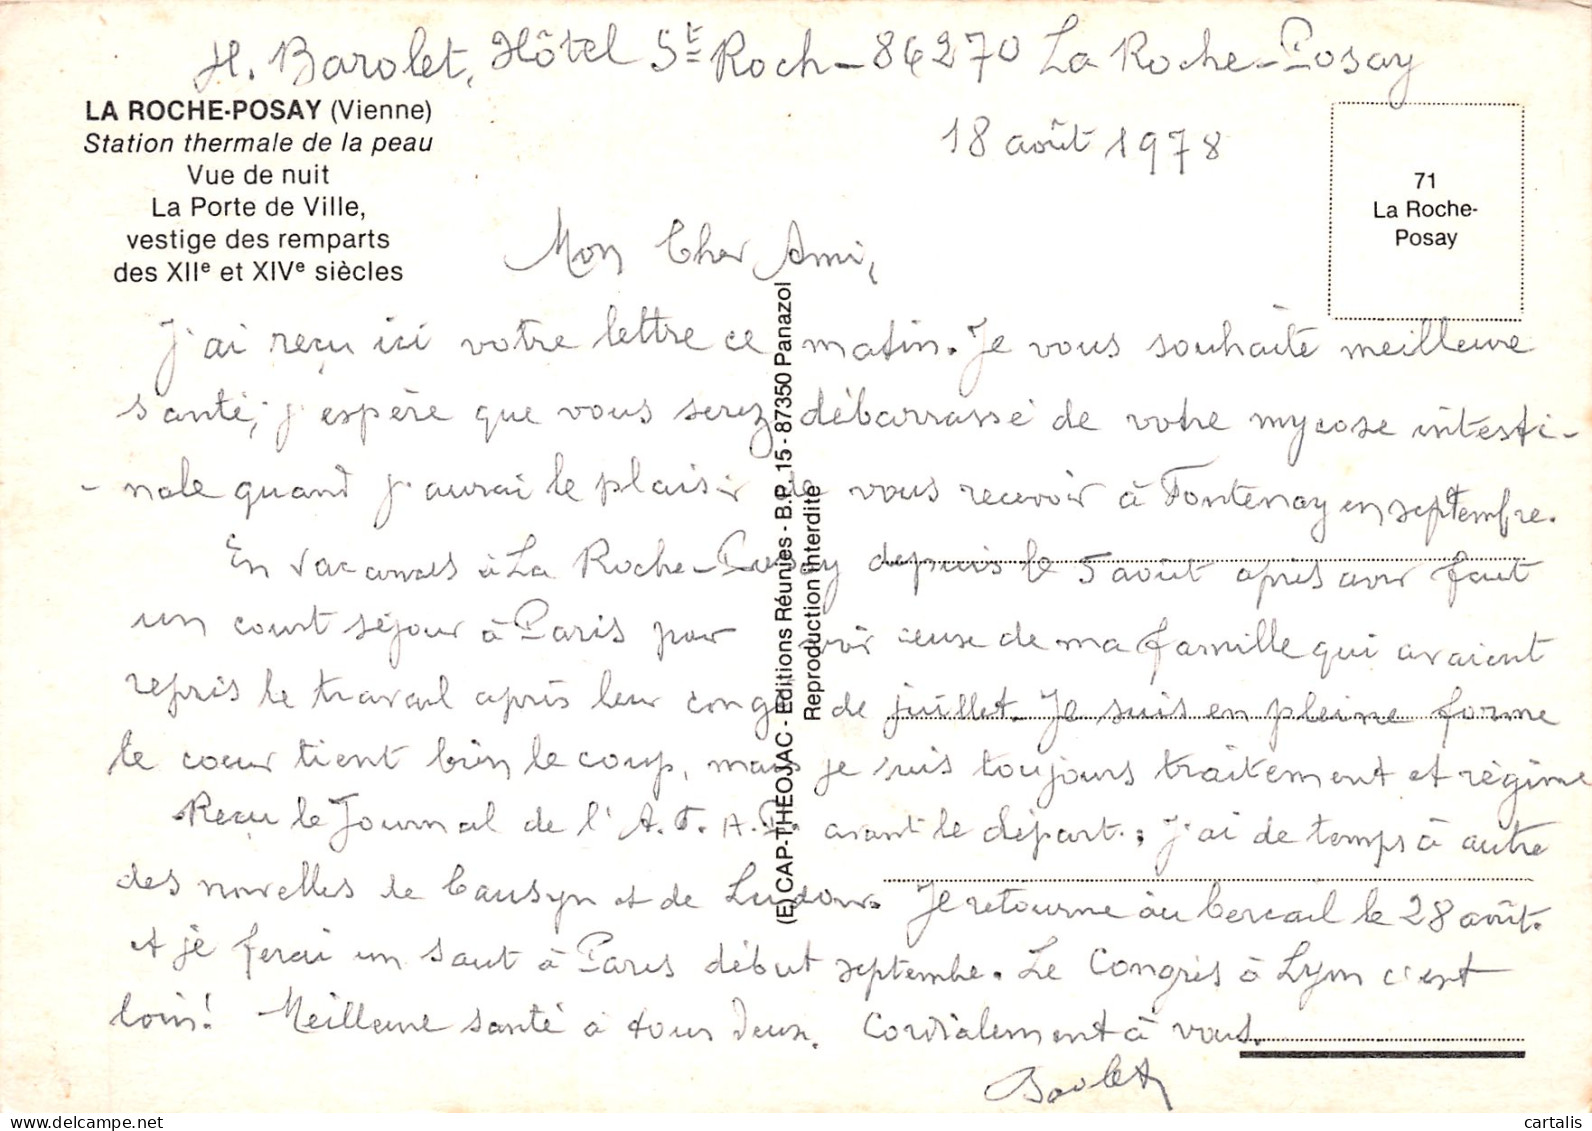 H. Barolet, Hôtel St Roch - 86270 La Roche-Posay
LA ROCHE-POSAY (Vienne)
Station thermale de la peau
Vue de nuit
La Porte de Ville,
vestige des remparts
des XIIe et XIVe siècles
18 août 1978
71
La Roche-
Posay
Mon Cher Ami,
J'ai reçu ici votre lettre ce matin. Je vous souhaite meilleure
santé, j'espère que vous serez débarrassé de votre mycose intesti-
-nale quand j'aurai le plaisir de vous recevoir à Fontenay en septembre.
En vacances à La Roche-Posay depuis le 5 août après avoir fait
un court séjour à Paris pour voir ceux de ma famille qui avaient
repris le travail après leur congé de juillet. Je suis en pleine forme
le coeur tient bien le coup, mais je suis toujours traitement et régime
Reçu le Journal de l'A.F.A.T. avant le départ. J'ai de temps à autre
des nouvelles de et de Je retourne au bercail le 28 août.
et je ferai un saut à Paris début septembre. Le Congrès à Lyon c'est
loin! Meilleure santé à tous deux. Cordialement à vous.
Barolet
(E) CAP-THÉOJAC - Editions Réunies - B.P. 15 - 87350 Panazol
Reproduction interdite
cartalis